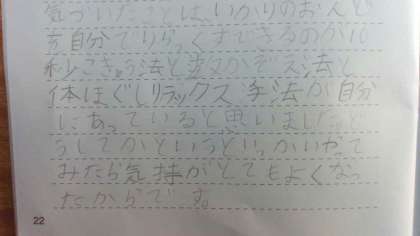 気づいたことは、いかりのおんど
を自分でりらっくすできるのが10
秒こきゅう法と数かぞえ法と
体ほぐしリラックス 法が自分
にあっていると思いましたど
うしてかというと いっかいやって
みたら気持がとてもよくなっ
たからです。
22